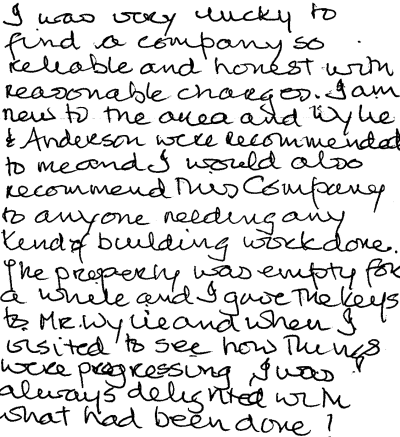 I was very lucky to
find a company so
reliable and honest with
reasonable charges. I am
new to the area and Wylie
& Anderson were recommended
to me and I would also
recommend This Company
to anyone needing any
kind of building work done.
The property was empty for
a while and I gave The keys
to Mr. Wylie and when I
visited to see how Things
were progressing I was
always delighted with
what had been done!